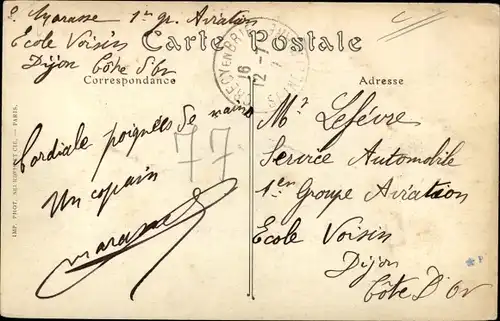 Marasse 1er gr. Aviation
Ecole Voisin
Dijon Côte d'Or
Carte Postale
Correspondance
Adresse
Cordiale poignées de mains
Un copain
Marasse
77
Mr Lefèvre
Service Automobile
1er Groupe Aviation
Ecole Voisin
Dijon
Côte D'Or